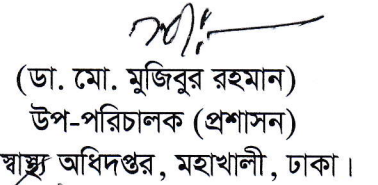 (ডা. মো. মুজিবুর রহমান)
উপ-পরিচালক (প্রশাসন)
স্বাস্থ্য অধিদপ্তর, মহাখালী, ঢাকা।